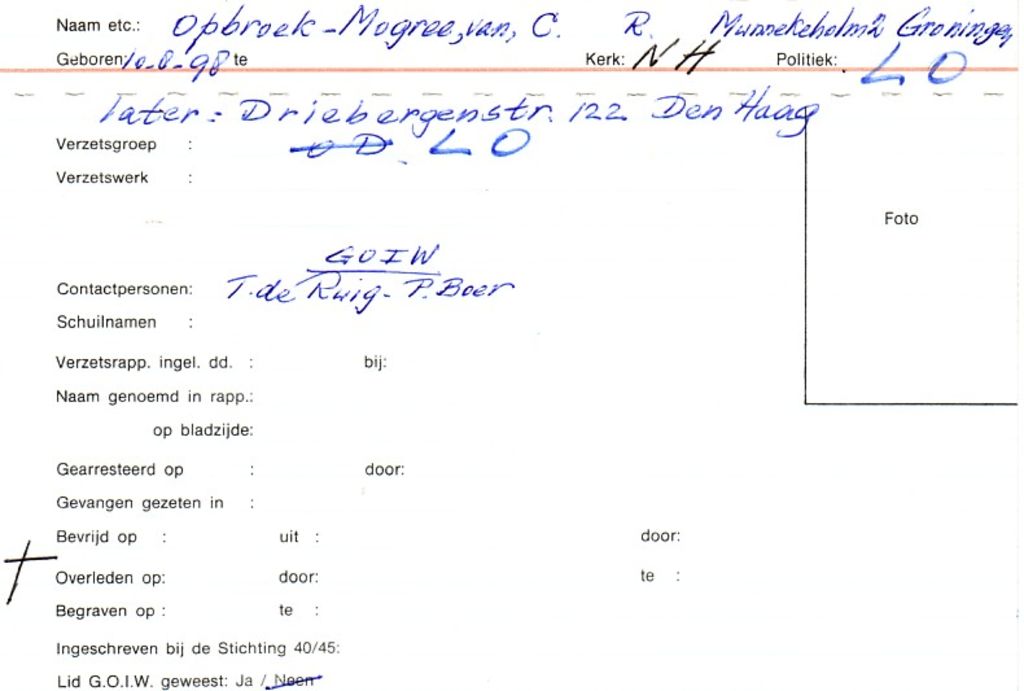 Naam etc.: Opbroek-Mogree, van, C. R. Munnekeholm 2 Groningen
Geboren 10-8-98 te Kerk: NH Politiek: LO
later: Driebergenstr. 122 Den Haag
Verzetsgroep : OD. LO
Verzetswerk :
Foto
GOIW
Contactpersonen: T. de Ruig - P. Boer
Schuilnamen :
Verzetsrapp. ingel. dd. : bij:
Naam genoemd in rapp.:
op bladzijde:
Gearresteerd op : door:
Gevangen gezeten in :
Bevrijd op : uit : door:
Overleden op: door: te :
Begraven op : te :
Ingeschreven bij de Stichting 40/45:
Lid G.O.I.W. geweest: Ja / Neen